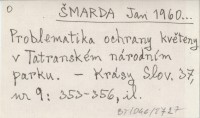 0
ŠMARDA Jan 1960...
Problematika ochrany květeny
v Tatranském národním
parku. - Krásy Slov. 37,
nr 9: 353-356, il.